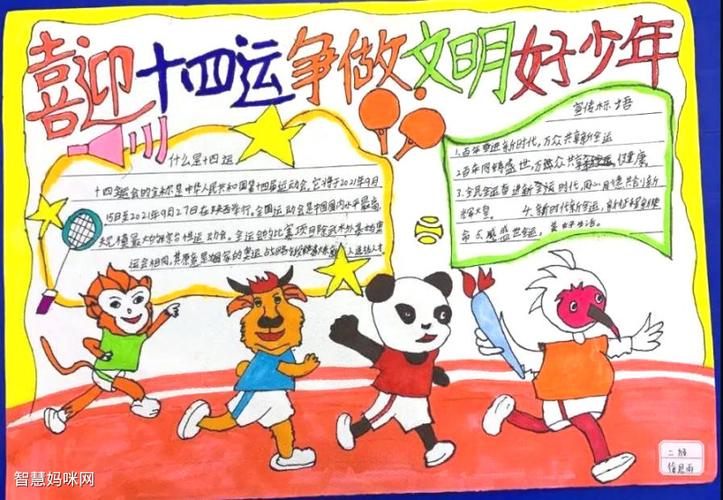 喜迎十四运争做文明好少年
什么是十四运
十四运会的全称是中华人民共和国第十四届运动会。它将于2021年9月
15日至2021年9月27日在陕西举行。全国运动会是中国国内水平最高
规模最大的综合性运动会。全运会的比赛项目除武术外基本与奥
运会相同,其原意是为国家的奥运战略
人选拔人才
宣传标语
1.百年奋进新时代,万众共享新全运
2.百年同铸盛世,万民众共享 健康
3.全民全运奋进新时代,同心同德共创新
辉煌
4.新时代新全运,新征程新使
命
5.盛世 运,美好生活。
二班
智慧妈咪网